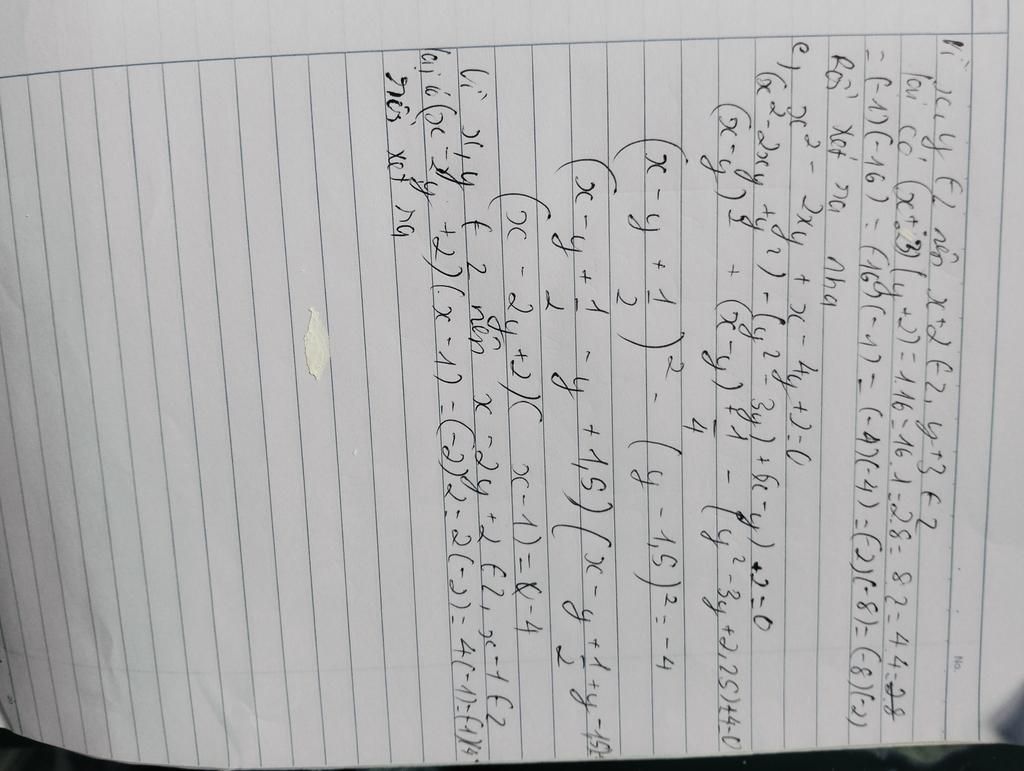 No.
Vì x, y ∈ Z nên x+2 ∈ Z, y+3 ∈ Z
lại có (x+3)(y+2) = 1.16 = 16.1 = 2.8 = 8.2 = 4.4
= (-1)(-16) = (-16)(-1) = (-4)(-4) = (-2)(-8) = (-8)(-2)
Rồi xét ra nha
e) x² - 2xy + x - 4y + 2 = 0
(x² - 2xy + y²) - (y² - 3y) + (x - y) + 2 = 0
(x-y)² + (x-y) + 1/4 - (y² - 3y + 2,25) + 4 = 0
(x - y + 1/2)² - (y - 1,5)² = -4
(x - y + 1/2 - y + 1,5)(x - y + 1/2 + y - 1,5)
(x - 2y + 2)(x - 1) = -4
Vì x, y ∈ Z nên x - 2y + 2 ∈ Z, x - 1 ∈ Z
lại có (x - 2y + 2)(x - 1) = (-2)2 = 2(-2) = 4(-1) = (-1)4
rồi xét ra